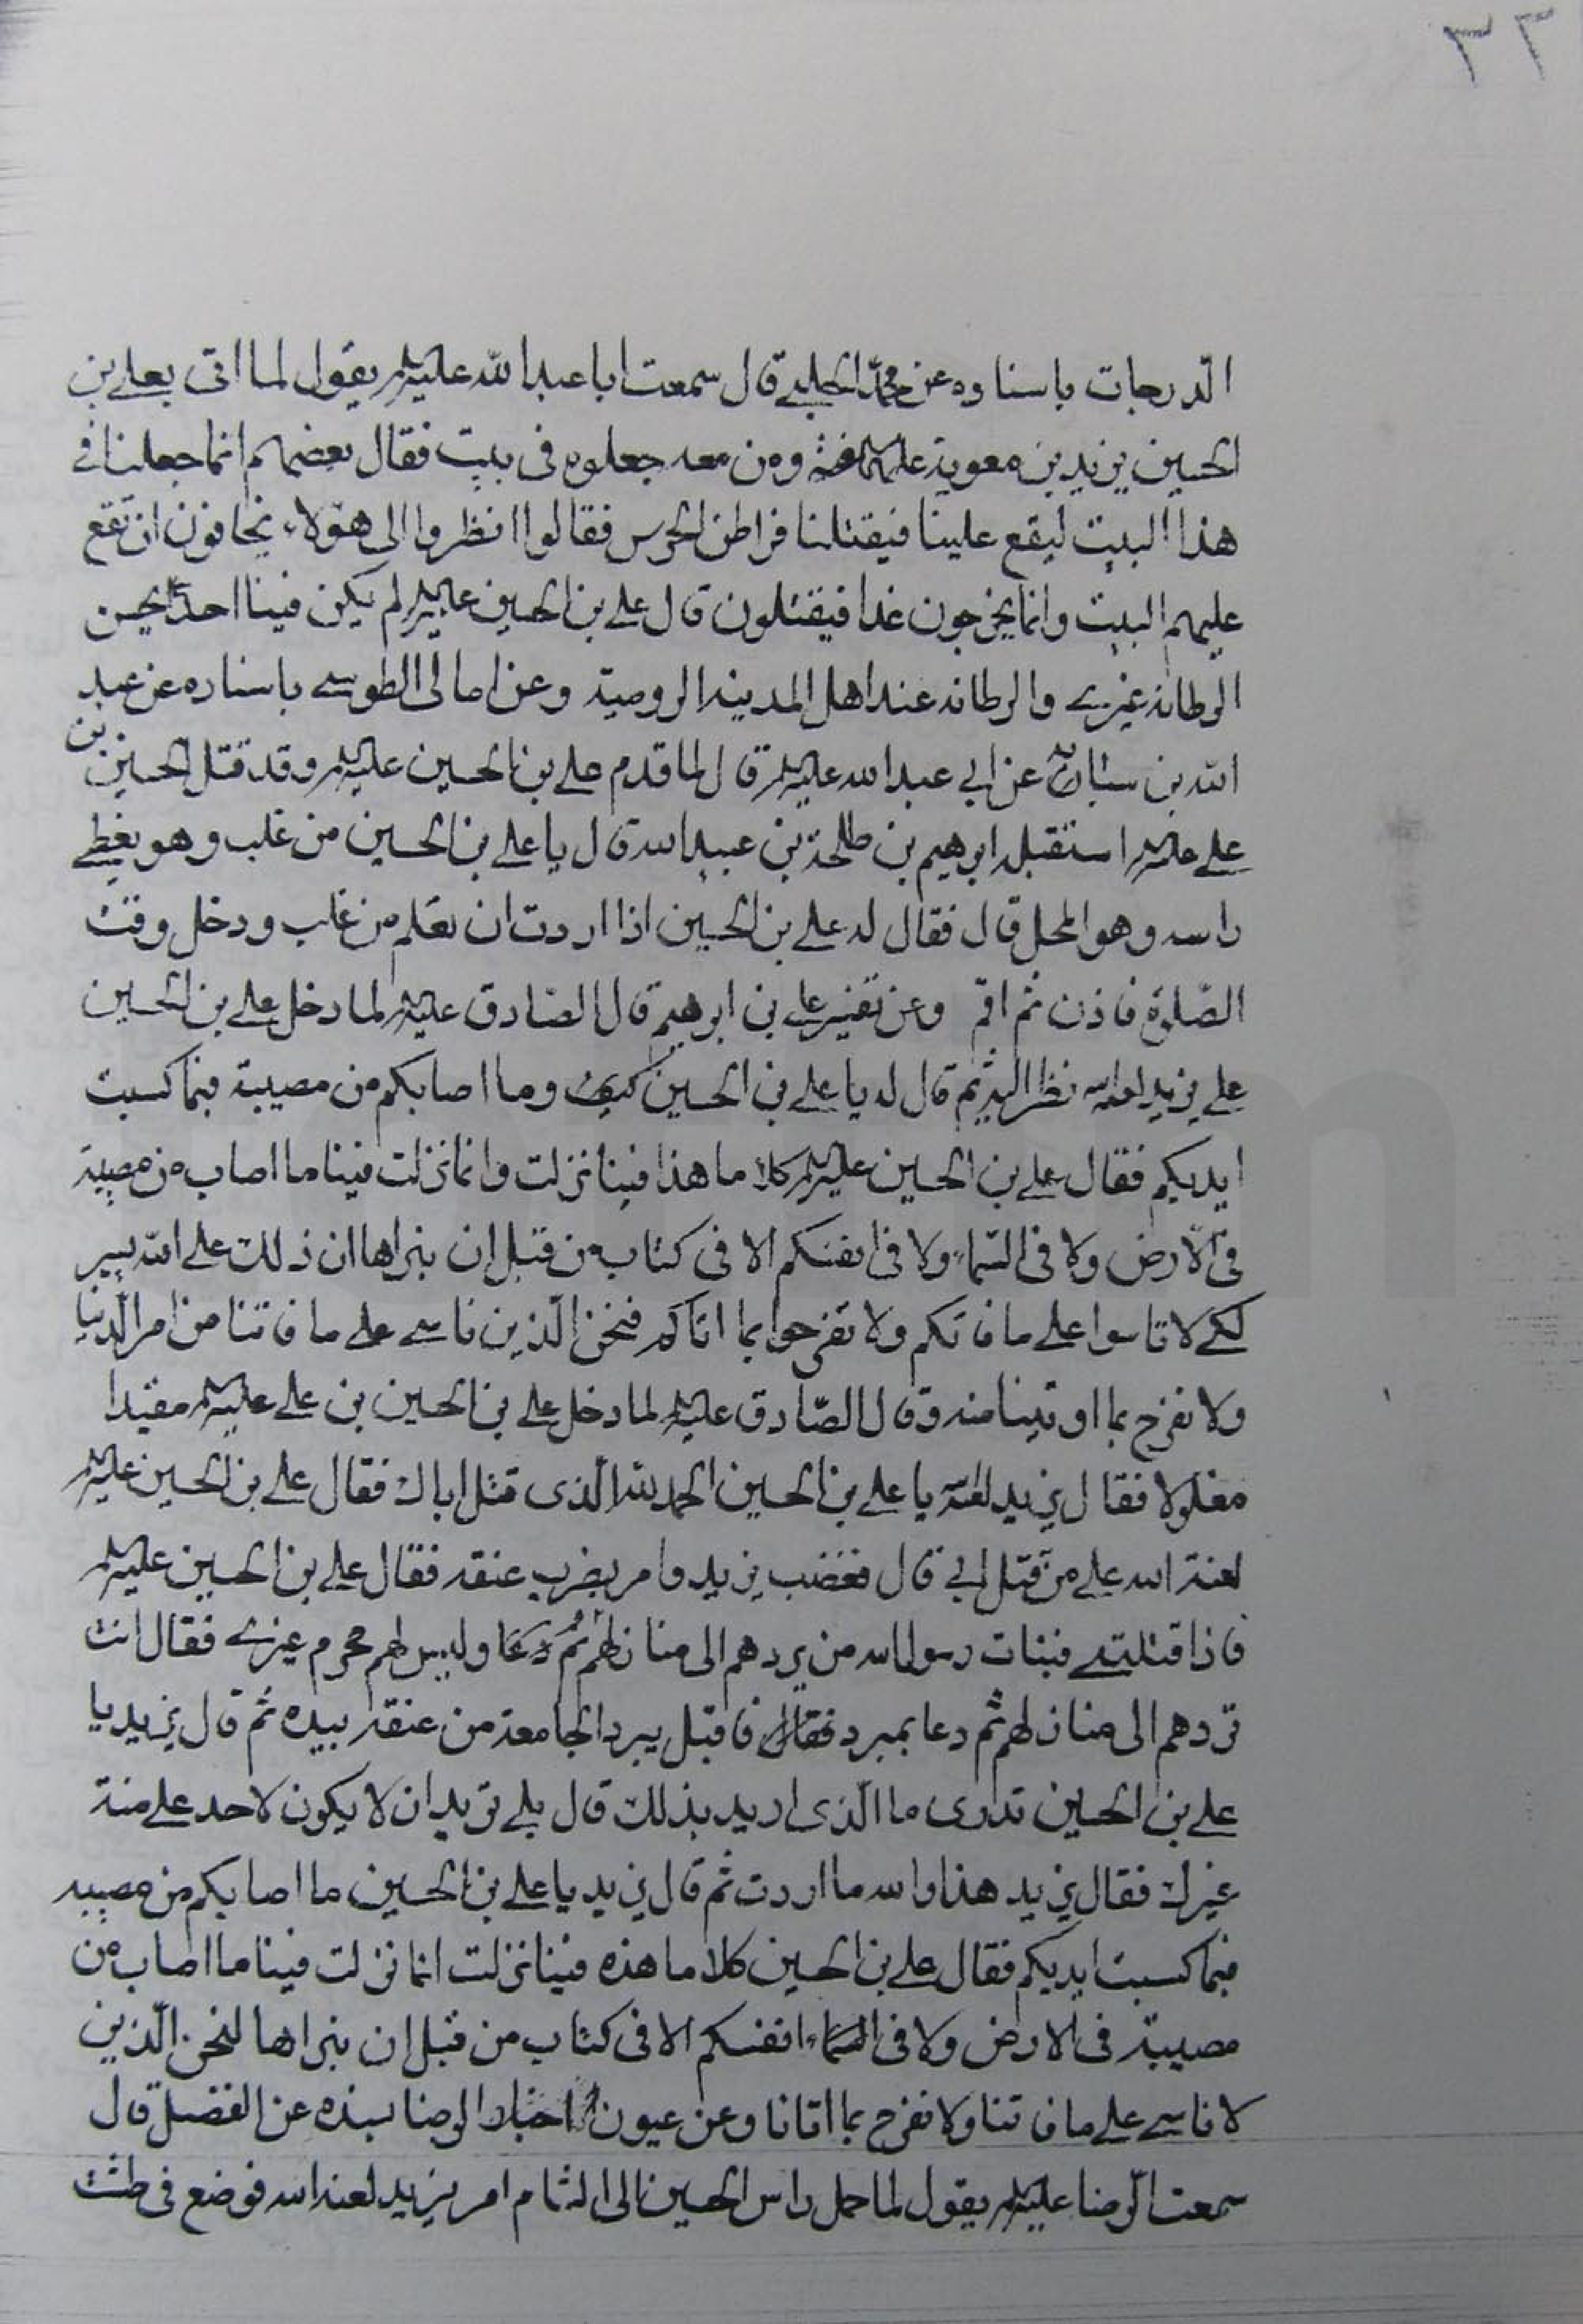 ٣٣
الدرجات باسناده عن محمد الحلبي قال سمعت ابا عبدالله عليه السلم يقول لما اتى بعلي بن
الحسين يزيد بن معوية ومن معه جعلوه في بيت فقال بعضهم انما جعلنا في
هذا البيت ليقع علينا فيقتلنا فراطن الحرس فقالوا انظروا الى هؤلاء يخافون ان تقع
عليهم البيت وانما يخرجون غدا فيقتلون قال علي بن الحسين عليه السلم لم يكن فينا احد يحسن
الرطانة غيري والرطانه عند اهل المدينه الرومية وعن امالى الطوسي باسناده عن عبد
الله بن عن ابي عبد الله عليه السلم قال لما قدم علي بن الحسين عليه السلم وقد قتل الحسين بن
علي عليه السلم استقبله ابرهيم بن طلحة بن عبيد الله قال يا علي بن الحسين من غلب وهو يغطي
راسه وهو المحمل قال فقال له علي بن الحسين اذا اردت ان تعلم من غلب ودخل وقت
الصلوة فاذن ثم اقم وعن تفسير علي بن ابرهيم قال الصادق عليه السلم لما دخل علي بن الحسين
علي يزيد لعنه الله نظر اليه ثم قال له يا علي بن الحسين وما اصابكم من مصيبة فبما كسبت
ايديكم فقال علي بن الحسين عليه السلم كلا ما هذا فينا نزلت وانما نزلت فينا ما اصاب من مصيبة
في الارض ولا في السماء ولا في انفسكم الا في كتاب من قبل ان نبراها ان ذلك على الله يسير
لكي لا تاسوا علي ما فاتكم ولا تفرحوا بما اتاكم فنحن الذين ناسي علي ما فاتنا من امر الدنيا
ولا نفرح بما اوتينا منه وقال الصادق عليه السلم لما دخل علي بن الحسين بن علي عليه السلم مقيدا
مغلولا فقال يزيد لعنه الله يا علي بن الحسين الحمد لله الذى قتل اباك فقال علي بن الحسين عليه السلم
لعنة الله علي من قتل ابي قال فغضب يزيد وامر بضرب عنقه فقال علي بن الحسين عليه السلم
فاذا قتلتني فبنات رسول الله من يردهم الى منازلهم وليس لهم محرم غيري فقال انت
تردهم الى منازلهم ثم دعا بمبرد فاقبل يبرد الجامعة من عنقه بيده ثم قال يزيد يا
علي بن الحسين تدرى ما الذى اريد بذلك قال بلي تريد ان لا يكون لاحد علي منة
غيرك فقال يزيد هذا والله ما اردت ثم قال يزيد يا علي بن الحسين ما اصابكم من مصيبه
فبما كسبت ايديكم فقال علي بن الحسين كلا ما هذه فينا نزلت انما نزلت فينا ما اصاب من
مصيبة في الارض ولا في انفسكم الا في كتاب من قبل ان نبراها لنحن الذين
لا ناسي علي ما فاتنا ولا نفرح بما اتانا وعن عيون اخبار الرضا بسنده عن الفضل قال
سمعت الرضا عليه السلم يقول لما حمل راس الحسين الى الشام امر يزيد لعنه الله فوضع في طشت